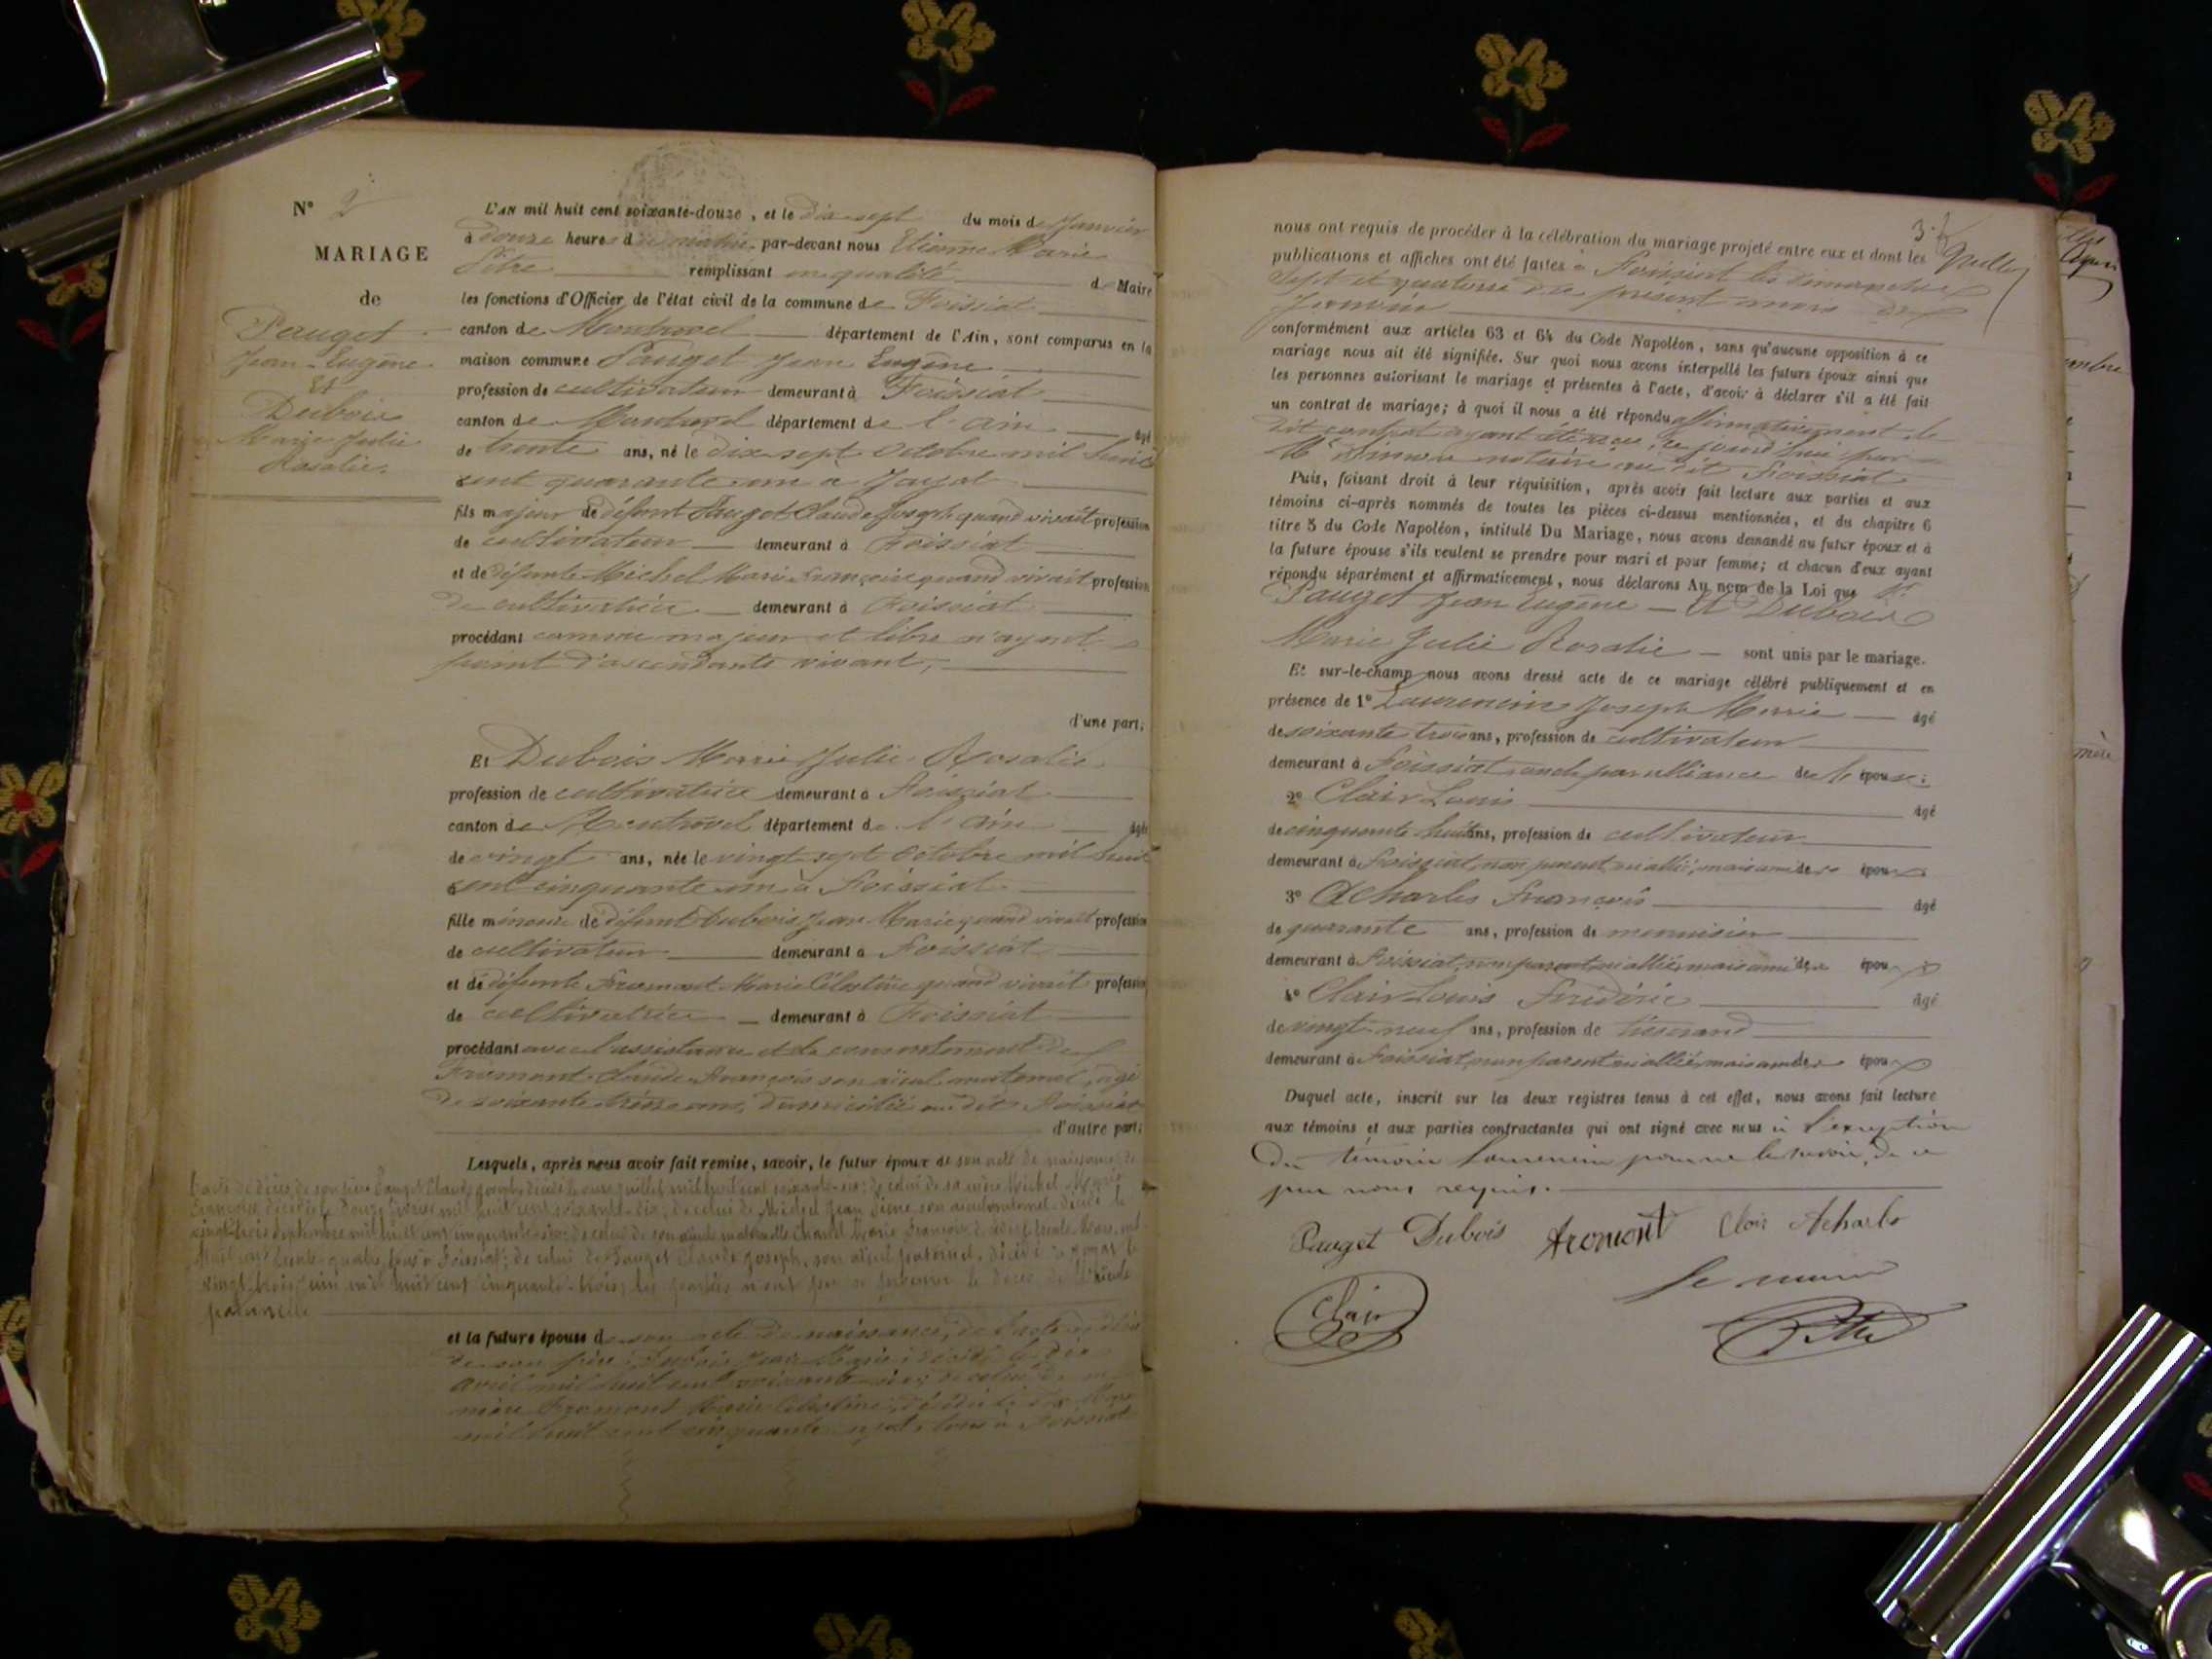 N° 2
MARIAGE
de
Pauget
Jean-Eugène
Et
Dubois
Marie Julie
Rosalie.
L'AN mil huit cent soixante-douze, et le dix-sept du mois de Janvier
à douze heures du matin par-devant nous Etienne Marie
remplissant en qualité de Maire
les fonctions d'Officier de l'état civil de la commune de Foissiat
canton de Montrevel département de l'Ain, sont comparus en la
maison commune Pauget Jean Eugène
profession de cultivateur demeurant à Foissiat
canton de Montrevel département de l'Ain âgé
de trente ans, né le dix sept Octobre mil huit
cent quarante-un à Jayat
fils majeur de défunt Pauget Claude Joseph quand vivait profession
de cultivateur demeurant à Foissiat
et de défunte Michel Marie Françoise quand vivait profession
de cultivatrice demeurant à Foissiat
procédant comme majeur et libre n'ayant
point d'ascendants vivant,
d'une part;
Et Dubois Marie Julie Rosalie
profession de cultivatrice demeurant à Foissiat
canton de Montrevel département de l'Ain âgée
de vingt ans, née le vingt sept Octobre mil huit
cent cinquante-un à Foissiat
fille mineure de défunt Dubois Jean Marie quand vivait profession
de cultivateur demeurant à Foissiat
et de défunte Fromont Marie Célestine quand vivait profession
de cultivatrice demeurant à Foissiat
procédant avec l'assistance et le consentement de
Fromont Claude François son aïeul maternel, âgé
de soixante treize ans, domicilié au dit Foissiat
d'autre part;
Lesquels, après nous avoir fait remise, savoir, le futur époux de son acte de naissance, de
l'acte de décès de son père Pauget Claude Joseph décédé le onze juillet mil huit cent soixante-six; de celui de sa mère Michel Marie
Françoise, décédée le douze mil huit cent soixante-dix; de celui de Michel Jean son aïeul maternel, décédé le
vingt-trois septembre mil huit cent cinquante-six; de celui de son aïeule maternelle Marie Françoise décédée le mars mil
huit cent trente-quatre, tous à Foissiat; de celui de Pauget Claude Joseph, son aïeul paternel, décédé à Jayat le
vingt-trois mil huit cent cinquante-trois; les parties n'ont pu se procurer le décès de l'aïeule
paternelle
et la future épouse de son acte de naissance, de l'acte de décès
de son père Dubois Jean Marie, décédé le dix
avril mil huit cent soixante-six; de celui de sa
mère Fromont Marie Célestine, décédée le Mars
mil huit cent cinquante-sept, tous à Foissiat
nous ont requis de procéder à la célébration du mariage projeté entre eux et dont les
publications et affiches ont été faites à Foissiat les dimanches
sept et quatorze du présent mois de
Janvier
conformément aux articles 63 et 64 du Code Napoléon, sans qu'aucune opposition à ce
mariage nous ait été signifiée. Sur quoi nous avons interpellé les futurs époux ainsi que
les personnes autorisant le mariage et présentes à l'acte, d'avoir à déclarer s'il a été fait
un contrat de mariage; à quoi il nous a été répondu affirmativement le
dit contrat ayant été reçu ce jourd'hui par
Me notaire au dit Foissiat
Puis, faisant droit à leur réquisition, après avoir fait lecture aux parties et aux
témoins ci-après nommés de toutes les pièces ci-dessus mentionnées, et du chapitre 6
titre 5 du Code Napoléon, intitulé Du Mariage, nous avons demandé au futur époux et à
la future épouse s'ils veulent se prendre pour mari et pour femme; et chacun d'eux ayant
répondu séparément et affirmativement, nous déclarons Au nom de la Loi que
Pauget Jean Eugène — Et Dubois
Marie Julie Rosalie — sont unis par le mariage.
Et sur-le-champ nous avons dressé acte de ce mariage célébré publiquement et en
présence de 1° Laurencin Joseph Marie âgé
de soixante trois ans, profession de cultivateur
demeurant à Foissiat oncle par alliance de l'épouse;
2° Clair Louis âgé
de cinquante huit ans, profession de cultivateur
demeurant à Foissiat, non parent, ni allié, mais ami des époux
3° Acharles François âgé
de quarante ans, profession de menuisier
demeurant à Foissiat, non parent, ni allié, mais ami des époux
4° Clair Louis Frédéric âgé
de vingt-neuf ans, profession de tisserand
demeurant à Foissiat, non parent ni allié, mais ami des époux
Duquel acte, inscrit sur les deux registres tenus à cet effet, nous avons fait lecture
aux témoins et aux parties contractantes qui ont signé avec nous à l'exception
du témoin Laurencin pour ne le savoir, de ce
par nous requis.
Pauget Dubois Fromont Clair Acharles
le maire
Clair